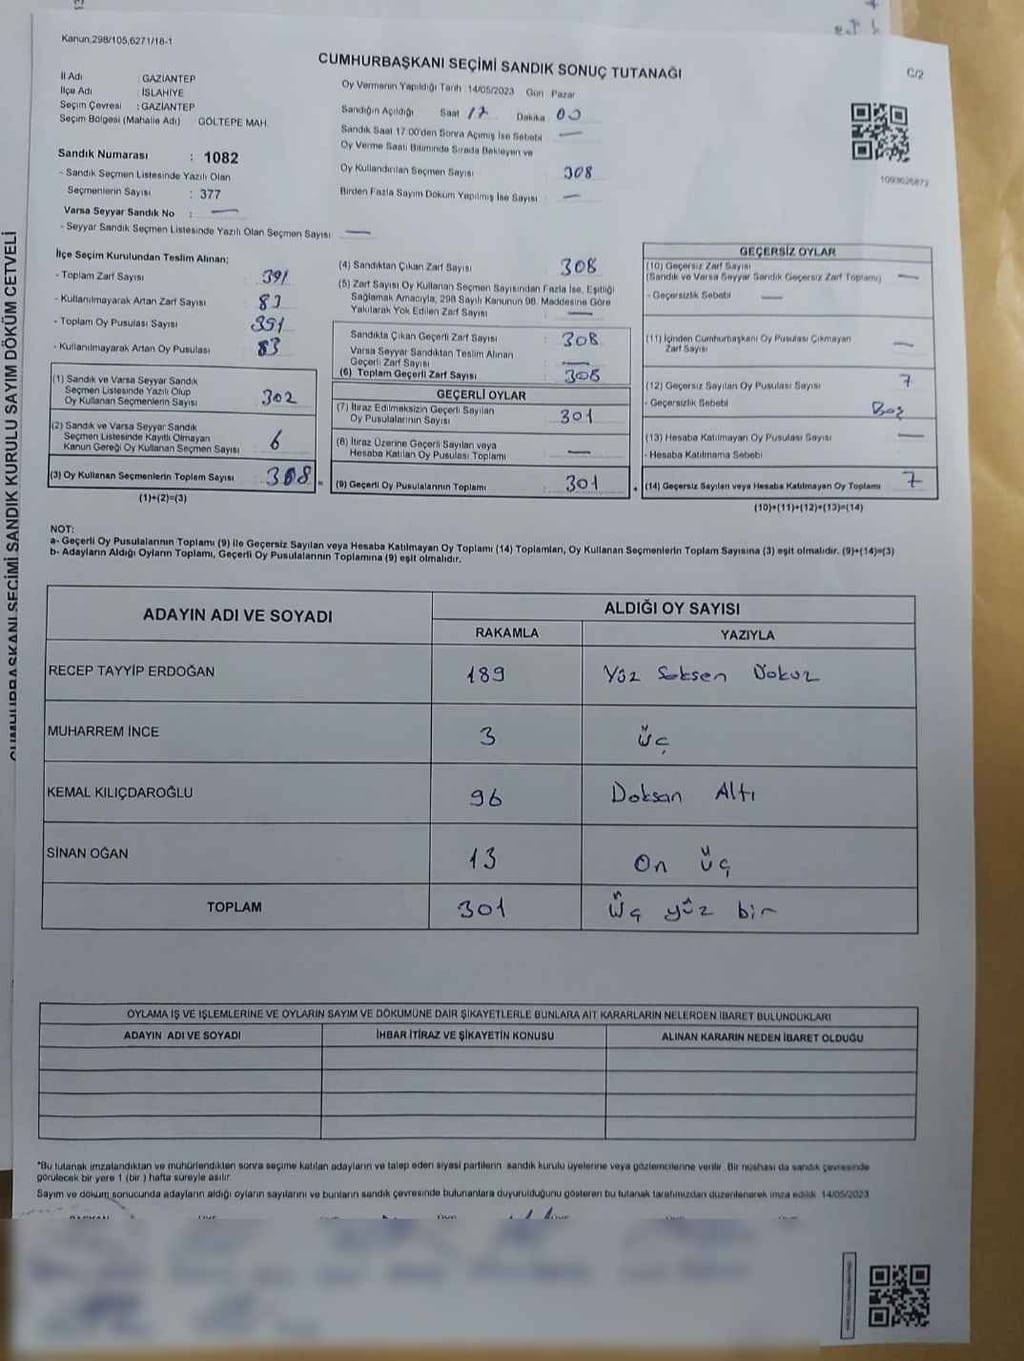 Kanun,298/105,6271/18-1
C/2
CUMHURBAŞKANI SEÇİMİ SANDIK SONUÇ TUTANAĞI
İl Adı : GAZİANTEP
İlçe Adı : İSLAHİYE
Seçim Çevresi : GAZİANTEP
Seçim Bölgesi (Mahalle Adı) GÖLTEPE MAH.
Sandık Numarası : 1082
- Sandık Seçmen Listesinde Yazılı Olan
Seçmenlerin Sayısı : 377
Varsa Seyyar Sandık No : —
- Seyyar Sandık Seçmen Listesinde Yazılı Olan Seçmen Sayısı —
Oy Vermenin Yapıldığı Tarih 14/05/2023 Gün Pazar
Sandığın Açıldığı Saat 17 Dakika 00
Sandık Saat 17.00'den Sonra Açılmış İse Sebebi —
Oy Verme Saati Bitiminde Sırada Bekleyen ve
Oy Kullandırılan Seçmen Sayısı 308
Birden Fazla Sayım Döküm Yapılmış İse Sayısı —
İlçe Seçim Kurulundan Teslim Alınan;
- Toplam Zarf Sayısı 391
- Kullanılmayarak Artan Zarf Sayısı 83
- Toplam Oy Pusulası Sayısı 391
- Kullanılmayarak Artan Oy Pusulası 83
(1) Sandık ve Varsa Seyyar Sandık
Seçmen Listesinde Yazılı Olup
Oy Kullanan Seçmenlerin Sayısı 302
(2) Sandık ve Varsa Seyyar Sandık
Seçmen Listesinde Kayıtlı Olmayan
Kanun Gereği Oy Kullanan Seçmen Sayısı 6
(3) Oy Kullanan Seçmenlerin Toplam Sayısı 308
(1)+(2)=(3)
(4) Sandıktan Çıkan Zarf Sayısı 308
(5) Zarf Sayısı Oy Kullanan Seçmen Sayısından Fazla İse, Eşitliği
Sağlamak Amacıyla, 298 Sayılı Kanunun 98. Maddesine Göre
Yakılarak Yok Edilen Zarf Sayısı —
Sandıkta Çıkan Geçerli Zarf Sayısı 308
Varsa Seyyar Sandıktan Teslim Alınan
Geçerli Zarf Sayısı —
(6) Toplam Geçerli Zarf Sayısı 308
GEÇERLİ OYLAR
(7) İtiraz Edilmeksizin Geçerli Sayılan
Oy Pusulalarının Sayısı 301
(8) İtiraz Üzerine Geçerli Sayılan veya
Hesaba Katılan Oy Pusulası Toplamı —
(9) Geçerli Oy Pusulalarının Toplamı 301
GEÇERSİZ OYLAR
(10) Geçersiz Zarf Sayısı
(Sandık ve Varsa Seyyar Sandık Geçersiz Zarf Toplamı) —
- Geçersizlik Sebebi —
(11) İçinden Cumhurbaşkanı Oy Pusulası Çıkmayan
Zarf Sayısı —
(12) Geçersiz Sayılan Oy Pusulası Sayısı 7
- Geçersizlik Sebebi Boş
(13) Hesaba Katılmayan Oy Pusulası Sayısı —
- Hesaba Katılmama Sebebi
(14) Geçersiz Sayılan veya Hesaba Katılmayan Oy Toplamı 7
(10)+(11)+(12)+(13)=(14)
NOT:
a- Geçerli Oy Pusulalarının Toplamı (9) ile Geçersiz Sayılan veya Hesaba Katılmayan Oy Toplamı (14) Toplamları, Oy Kullanan Seçmenlerin Toplam Sayısına (3) eşit olmalıdır. (9)+(14)=(3)
b- Adayların Aldığı Oyların Toplamı, Geçerli Oy Pusulalarının Toplamına (9) eşit olmalıdır.
ADAYIN ADI VE SOYADI ALDIĞI OY SAYISI
RAKAMLA YAZIYLA
RECEP TAYYİP ERDOĞAN 189 Yüz Seksen Dokuz
MUHARREM İNCE 3 üç
KEMAL KILIÇDAROĞLU 96 Doksan Altı
SİNAN OĞAN 13 On üç
TOPLAM 301 Üç yüz bir
OYLAMA İŞ VE İŞLEMLERİNE VE OYLARIN SAYIM VE DÖKÜMÜNE DAİR ŞİKAYETLERLE BUNLARA AİT KARARLARIN NELERDEN İBARET BULUNDUKLARI
ADAYIN ADI VE SOYADI İHBAR İTİRAZ VE ŞİKAYETİN KONUSU ALINAN KARARIN NEDEN İBARET OLDUĞU
*Bu tutanak imzalandıktan ve mühürlendikten sonra seçime katılan adayların ve talep eden siyasi partilerin sandık kurulu üyelerine veya gözlemcilerine verilir. Bir nüshası da sandık çevresinde
görülecek bir yere 1 (bir) hafta süreyle asılır.
Sayım ve döküm sonucunda adayların aldığı oyların sayılarını ve bunların sandık çevresinde bulunanlara duyurulduğunu gösteren bu tutanak tarafımızdan düzenlenerek imza edildi. 14/05/2023
CUMHURBAŞKANI SEÇİMİ SANDIK KURULU SAYIM DÖKÜM CETVELİ